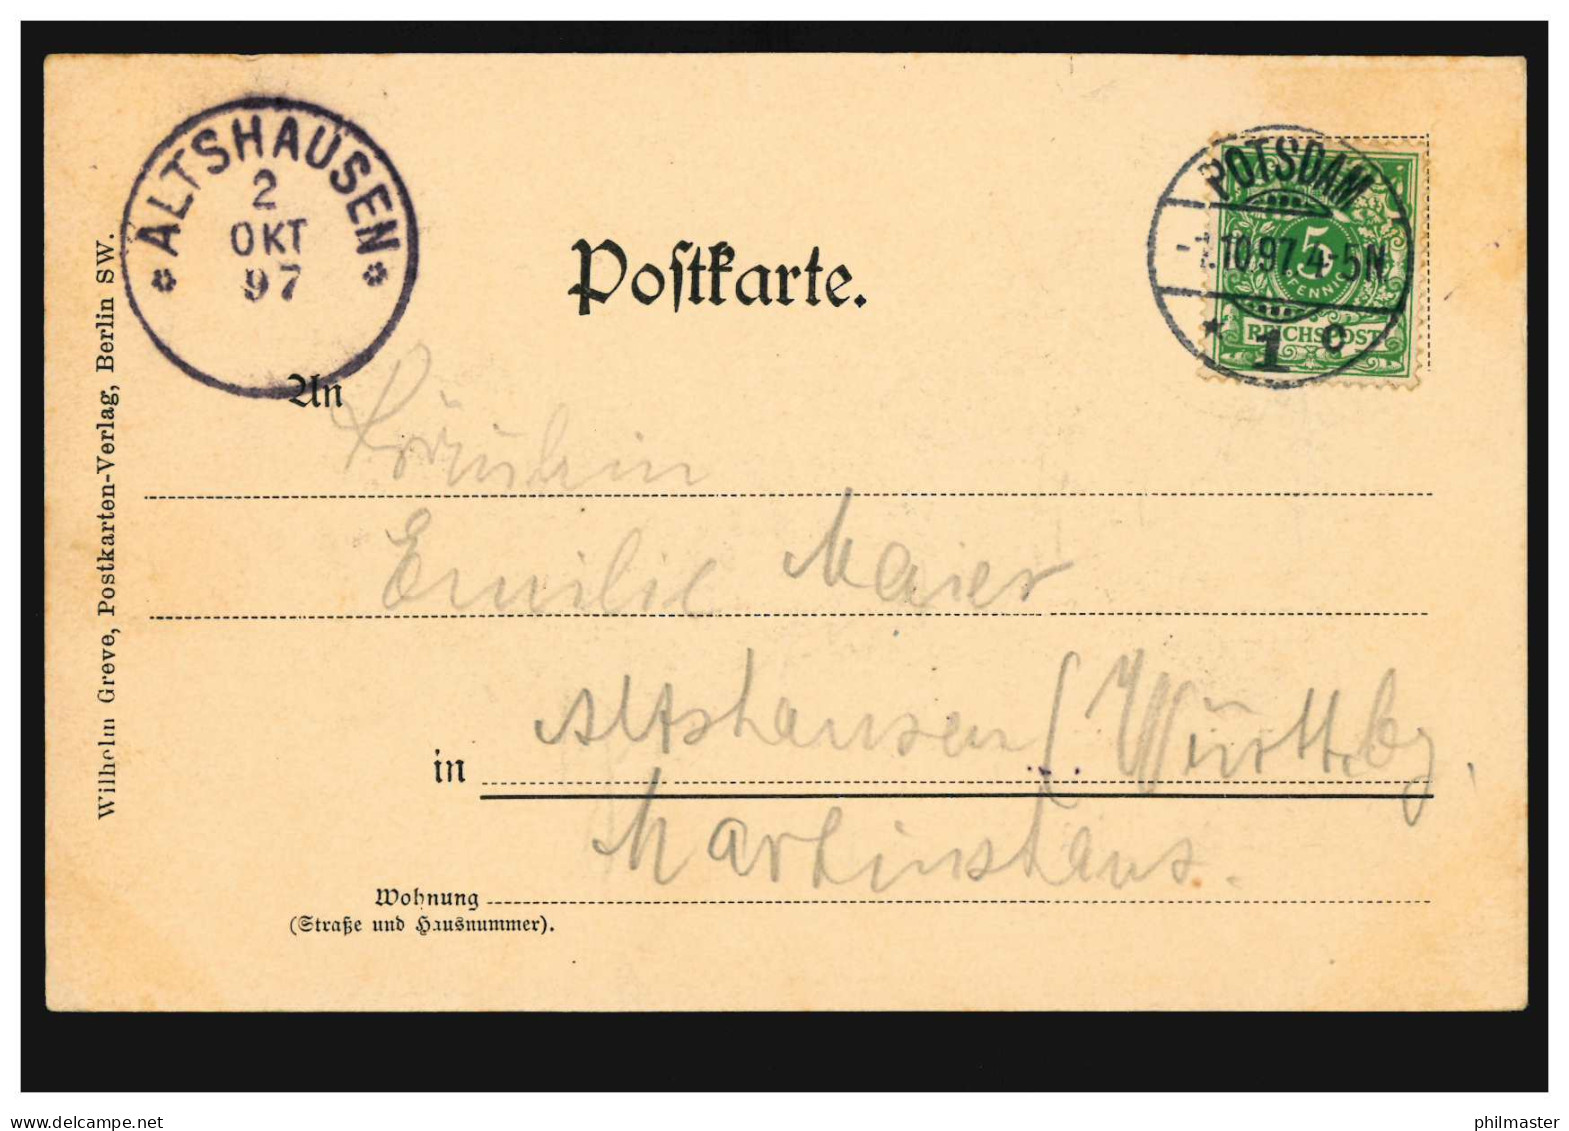 ALTSHAUSEN
2
OKT
97
POTSDAM
-1.10.97.4-5N
* 1 c
5
PFENNIG
REICHSPOST
Postkarte.
An
Fräulein
Emilie Maier
in Altshausen / Württbg.
Martinshaus.
Wohnung
(Straße und Hausnummer).
Wilhelm Greve, Postkarten-Verlag, Berlin SW.
www.delcampe.net
philmaster